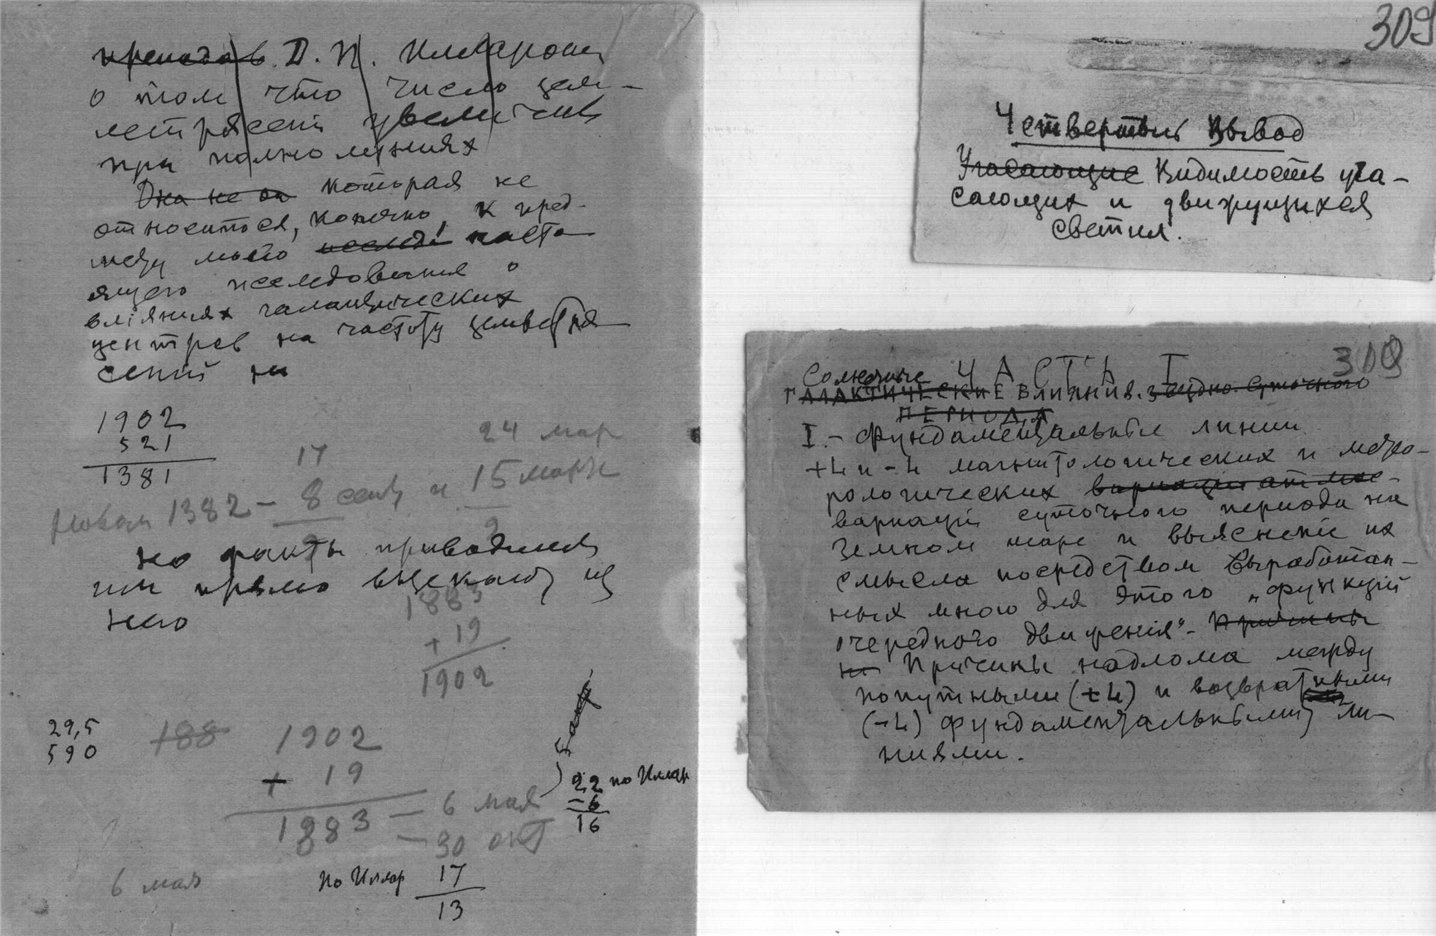 Д. И. Иллароши
о том что число зем-
летрясений увеличив
при полнолуниях
Она не он которая не
относится, конечно, к пред-
мету моего насто-
ящего исследования о
влияниях галактических
центров на частоту землетря-
сений на
1902
521
1381
24 мар
17
Новая 1382 - 8 сент и 15 марта
9 9
но факты приводимые
им прямо вытекают из
него
1883
+ 19
1902
29,5
590
188
1902
+ 19
1883 = 6 мая
= 30 окт
22 по Иллар
- 6
16
6 мая
По Иллар 17
13
309
Четвертый вывод
Угасающие Видимость уга-
сающих и движущихся
светил.
309
Солнечные ЧАСТЬ I
ГАЛАКТИЧЕСКИЕ ВЛИЯНИЯ. звездно-суточного
ПЕРИОДА
I.- Фундаментальные линии
+L и -L магнитологических и метео-
рологических вариаций атмос-
вариаций суточного периода на
Земном шаре и выяснение их
смысла посредством выработан-
ных мною для этого „функций
очередного движения". - Причины
на Причины надлома между
попутными (+L) и возвратными
(-L) фундаментальными ли-
ниями.